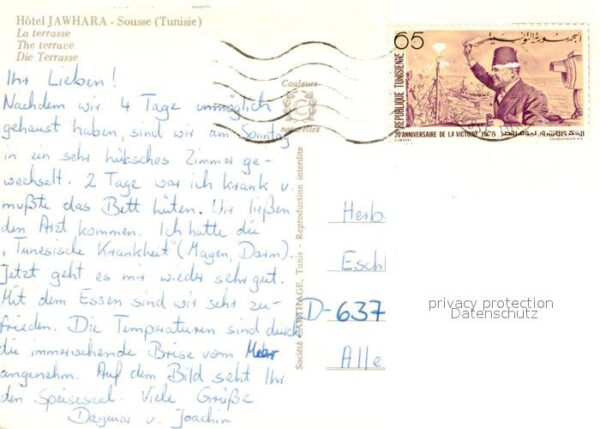 Hôtel JAWHARA - Sousse (Tunisie)
La terrasse
The terrace
Die Terrasse
Ihr Lieben!
Nachdem wir 4 Tage unmöglich
gehaust haben, sind wir am Sonntag
in ein sehr hübsches Zimmer ge-
wechselt. 2 Tage war ich krank u.
mußte das Bett hüten. Wir ließen
den Arzt kommen. Ich hatte die
"Tunesische Krankheit" (Magen, Darm).
Jetzt geht es mir wieder sehr gut.
Mit dem Essen sind wir sehr zu-
frieden. Die Temperaturen sind durch
die immerwehende Brise vom Meer
angenehm. Auf dem Bild seht Ihr
den Speisesaal. Viele Grüße
Dagmar u. Joachim
Couleurs
naturelles
Société CARTHAGE, Tunis - Reproduction interdite
65
REPUBLIQUE TUNISIENNE
الجمهورية التونسية
20 ANNIVERSAIRE DE LA VICTOIRE 1975
Herb
Eschl
D-637
Alle
privacy protection
Datenschutz